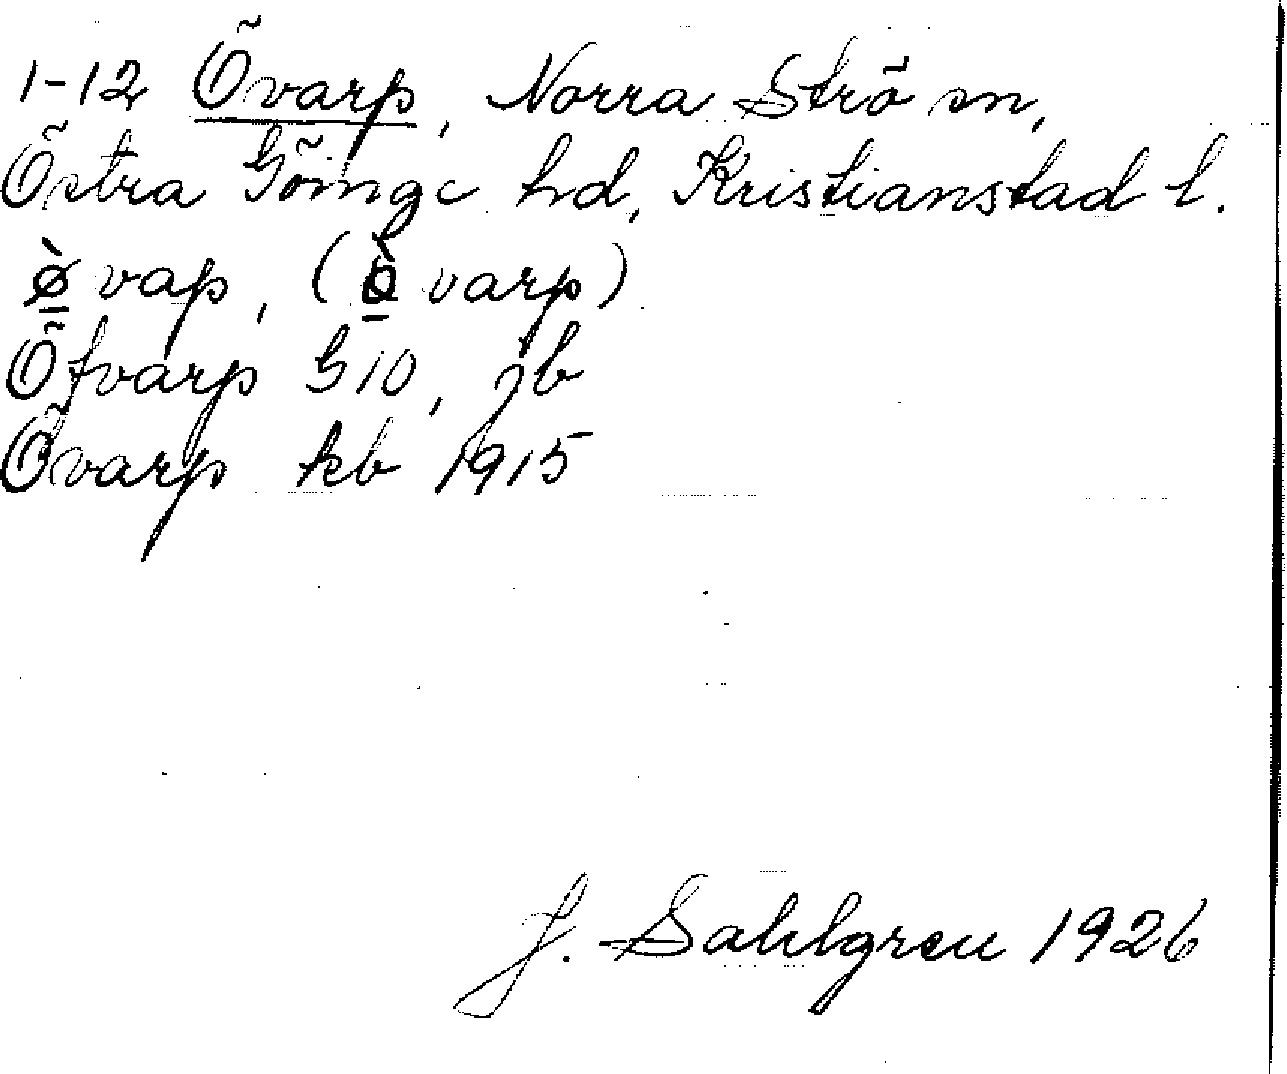 1-12 Övarp, Norra Strö sn,
Östra Göinge hd, Kristianstad l.
ø̀vap, (ø̀varp)
Öfvarp G10, jb
Övarp kb 1915
J. Sahlgren 1926